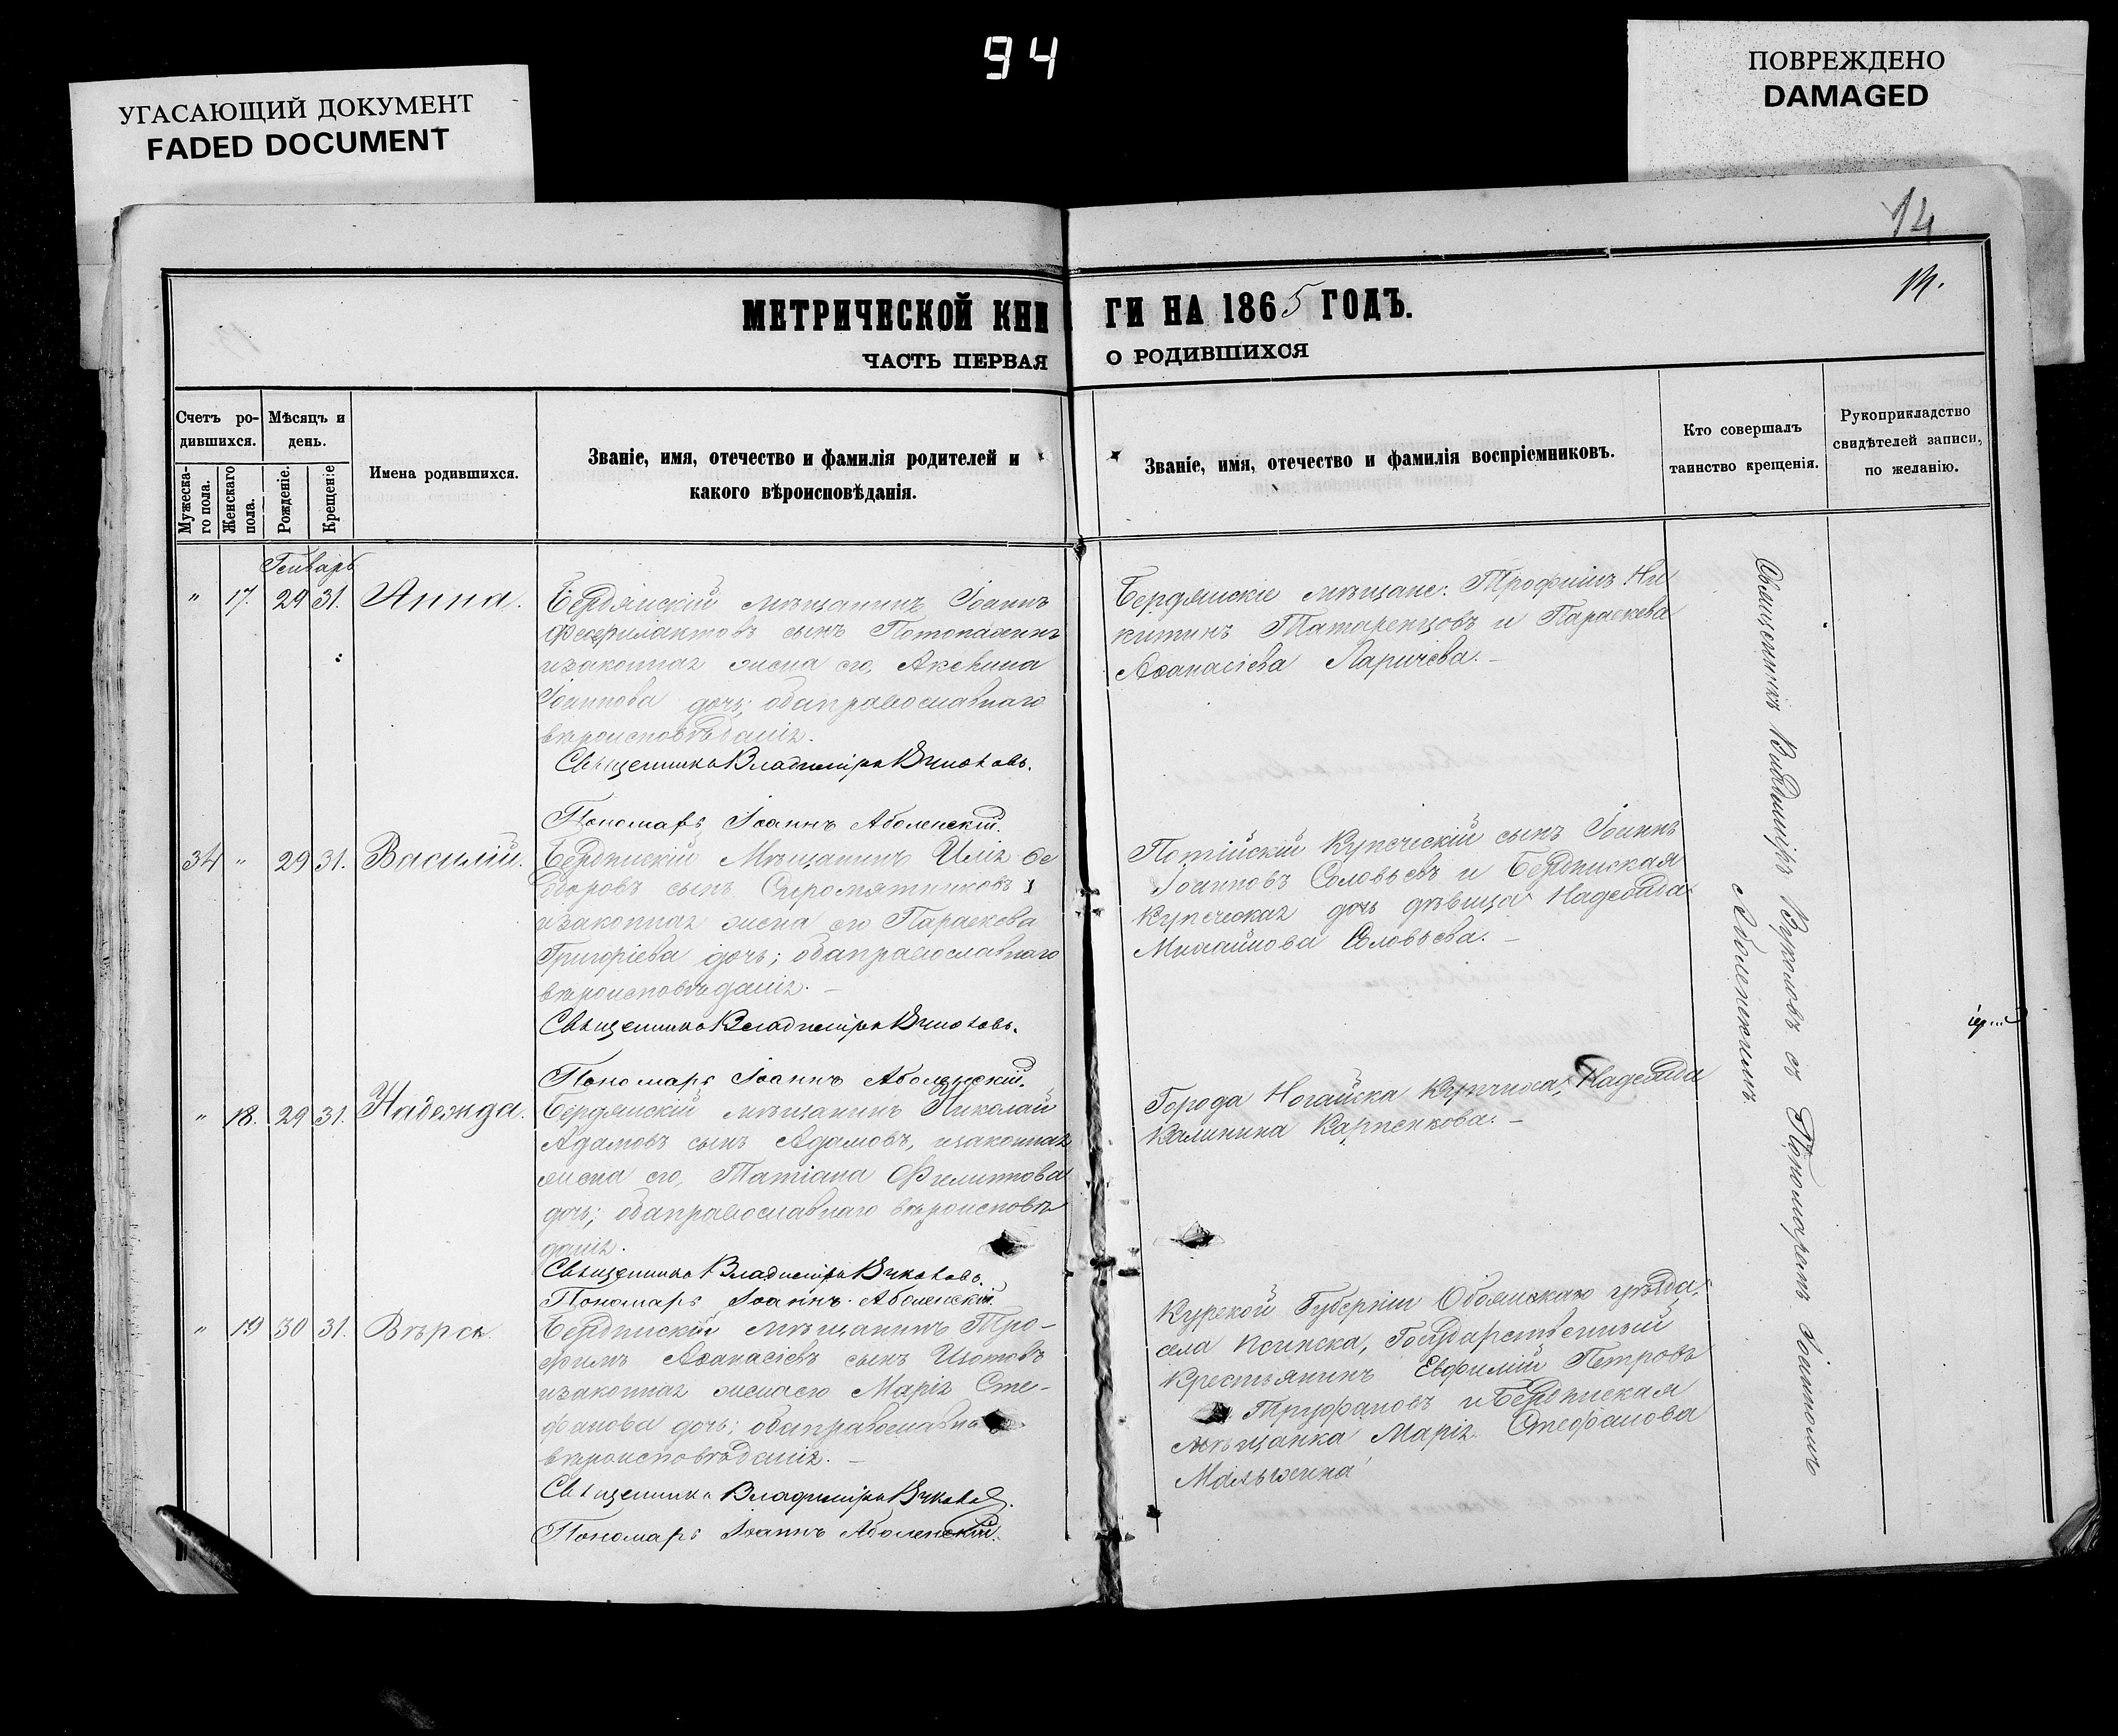 94
УГАСАЮЩИЙ ДОКУМЕНТ
FADED DOCUMENT
ПОВРЕЖДЕНО
DAMAGED
14
14.
МЕТРИЧЕСКОЙ КНИ ГИ НА 1865 ГОДЪ.
ЧАСТЬ ПЕРВАЯ О РОДИВШИХСЯ
Счетъ ро-
дившихся.
Мѣсяцъ и
день.
Мужеска-
го пола.
Женскаго
пола.
Рожденіе.
Крещеніе
Имена родившихся.
Званіе, имя, отечество и фамилія родителей и
какого вѣроисповѣданія.
Званіе, имя, отечество и фамилія воспріемниковъ.
Кто совершалъ
таинство крещенія.
Рукоприкладство
свидѣтелей записи,
по желанію.
Генварь
" 17. 29 31. Анна.
Бердянскій мѣщанинъ Іоаннъ
сынъ
изаконная жена его, Аксинья
Іоаннова дочь; оба православнаго
вѣроисповѣданія.
Священникъ Владиміръ
Пономарь Іоаннъ Аболенскій.
Бердянскіе мѣщане: Трофимъ Ни
китинъ Татаренцовъ и Параскева
Аѳанасіева Ларичева.
34 " 29 31. Василій.
Бердянскій Мѣщанинъ Илія Ѳе
доровъ сынъ Сыромятниковъ
изаконная жена его Параскева
Григоріева дочь; оба православнаго
вѣроисповѣданія. —
Священникъ Владиміръ
Пономарь Іоаннъ Аболенскій.
Потійскій Купеческій сынъ Іоаннъ
Іоанновъ Соловьевъ и Бердянская
Купеческая дочь дѣвица Надежда
Михайлова Соловьева. —
" 18. 29 31. Надежда.
Бердянскій мѣщанинъ Николай
Адамовъ сынъ Адамовъ, изаконная
жена его, Татіана Филиппова
дочь; оба православнаго вѣроисповѣ
данія.
Священникъ Владиміръ
Пономарь Іоаннъ Аболенскій.
Города Ногайска Купчиха, Надежда
Калинина Карпенкова. —
" 19 30 31. Вѣра.
Бердянскій мѣщанинъ Тро-
фимъ Аѳанасіевъ сынъ Изотовъ
изаконная жена его Марія Сте-
фанова дочь; оба православна
вѣроисповѣданія. —
Священникъ Владиміръ
Пономарь Іоаннъ Аболенскій.
Курской Губерніи Обоянскаго уѣзда,
села Государственный
Крестьянинъ Евфимій Петровъ
Труфановъ и Бердянская
мѣщанка Марія Стефанова
Священникъ Владиміръ съ Пономаремъ Іоанномъ
Аболенскимъ.